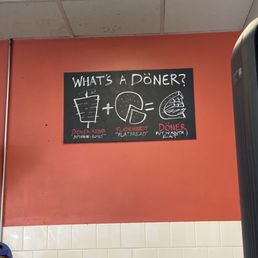 WHAT'S A DÖNER?
+ =
DÖNER KEBAB
FLADENBROT
"FLATBREAD"
DÖNER